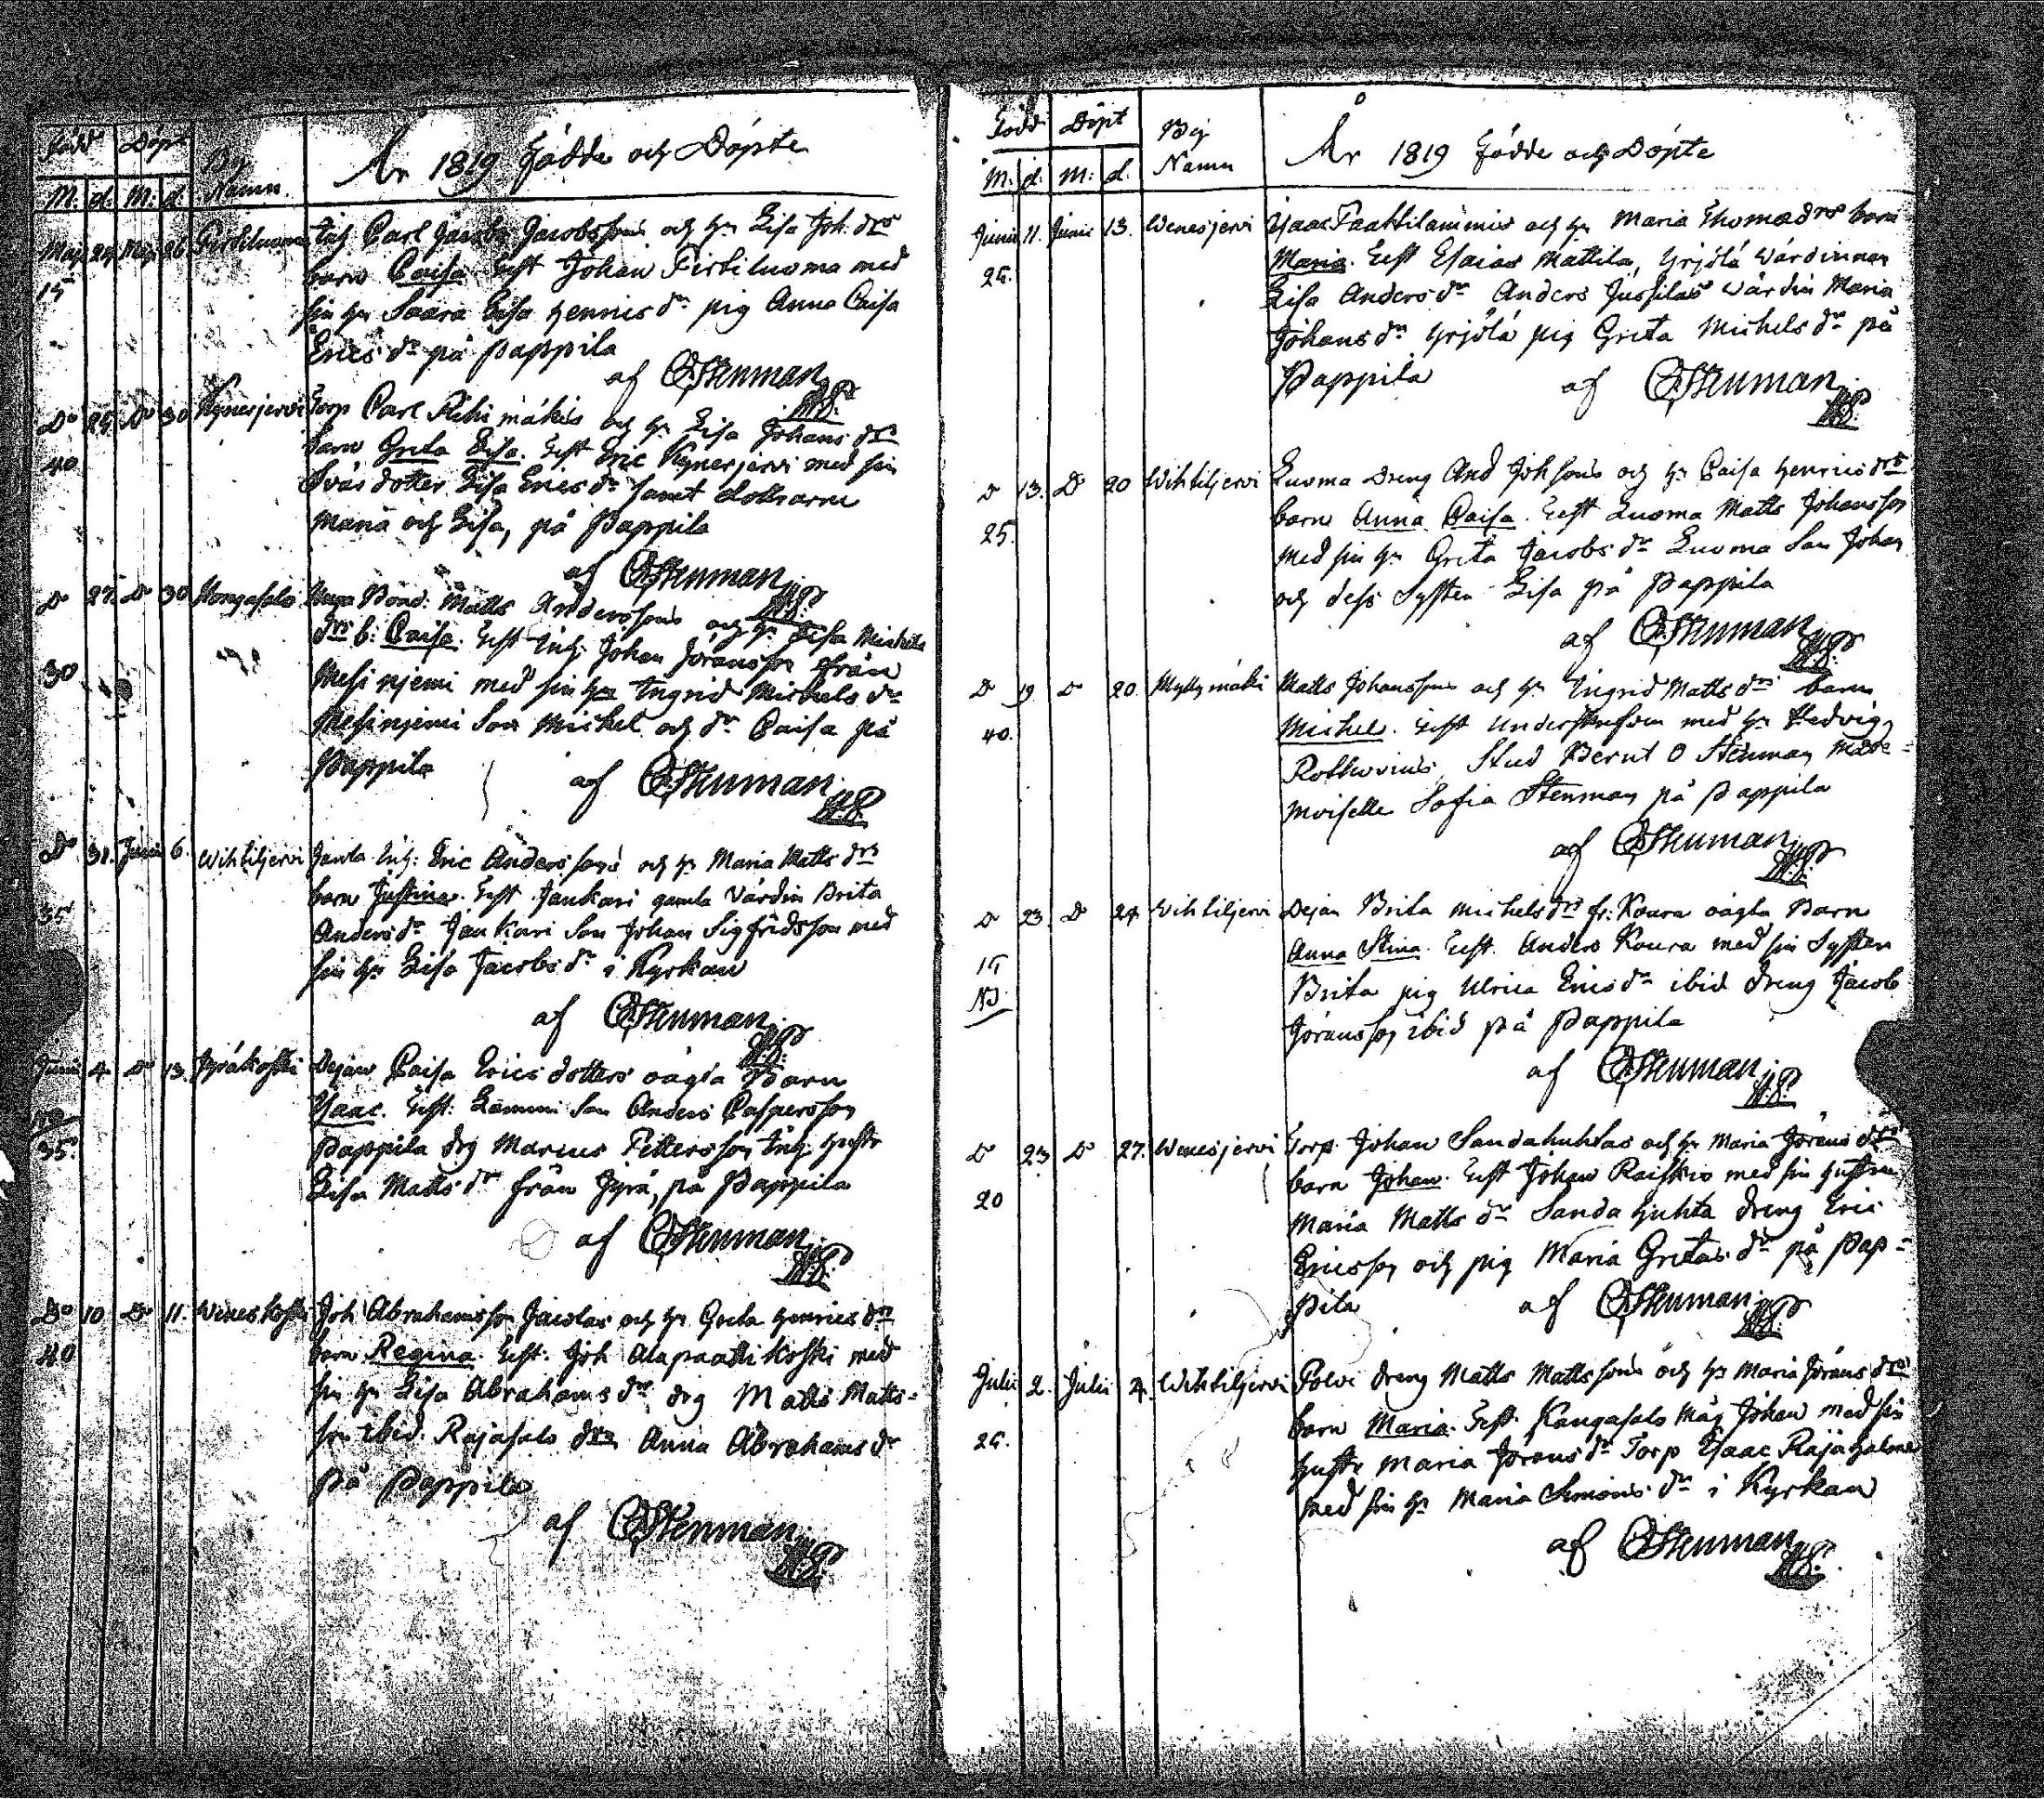 Född Döpt By Namn. År 1819 Födde och Döpte
M: d. M: d.
Maji 24 Maji 26 Inh Carl Jacobs Jacobssons och h. Lisa Joh. drs
15 barn Caisa. Test Johan Firtiluoma med
sin h. Saara Lisa Henrics dr. pig Anna Caisa
Erics dr på Pappila
af CStenman
Do 25 Do 30 Kynerjervi Torp Carl Rihimäkis och h. Lisa Johans drs
40 barn Greta Lisa. Test Eric Kynerjervi med sin
Svärdotter Lisa Erics dr samt dottrarne
Maria och Lisa, på Pappila
af CStenman
Do 27 Do 30 Matts Anderssons och h. Lisa Michels
drs b: Caisa. Test Inh: Johan Göransson från
30 Mesinjemi med sin h. Ingrid Michels dr
Mesinjemi Son Michel och dr Caisa på
Pappila af CStenman
Do 31. Junii 6. Wihtiljervi Inh: Eric Anderssons och h. Maria Matts drs
35 barn Justina. Test Jankari gamla Värdin Brita
Anders dr Jankari Son Johan Sigfridsson med
sin h. Lisa Jacobs dr i Kyrkan
af CStenman
Junii 4 Do 13. Jyräkoski Dejan Caisa Erics dotters oägta Barn
Isaac. Test: Lammi Son Anders Caspersson
35. Pappila drg Marcus Pettersson Inh: hustr
Lisa Matts dr från Jyrä, på Pappila
af CStenman
Do 10 Do 11. Weneskoski Joh Abrahamsson Jacolas och h. Greta Henrics drs
40 barn Regina. Test. Joh Alapaattikoski med
sin h. Lisa Abrahams dr drg Matts Matts-
son ibid. Rajasalo drn Anna Abrahams dr
På Pappila
af CStenman
Född Döpt By Namn År 1819 Födde och Döpte
M: d. M: d.
Junii 11. Junii 13. Wenesjervi Isaac Paattilammis och h. Maria Thomæ drs barn
26. Maria. Test Esaias Mattila, Yrjölä Värdinnan
Lisa Anders dr Anders Jussilas Värdin Maria
Johans dr Yrjölä pig Greta Michels dr på
Pappila af CStenman
Do 13. Do 20 Wihtiljervi Luoma Dreng And Johsons och h. Caisa Henrics drs
25. barn Anna Caisa. Test Luoma Matts Johansson
med sin h. Greta Jacobs dr Luoma Son Johan
och dess Syster Lisa på Pappila
af CStenman
Do 19 Do 20. Myllymäki Matts Johanssons och h. Ingrid Matts drs barn
40. Michel. Test Underskrifven med h. Hedvig
Rothovius, Stud Bernt O Stenman Made-
moiselle Sofia Stenman på Pappila
af CStenman
Do 23. Do 24 Wihtiljervi Dejan Brita Michels drs fr: Koura oägta Barn
15 Anna Stina. Test. Anders Koura med sin Syster
Brita pig Ulrica Erics dr ibid Dreng Jacob
Göransson ibid på Pappila
af CStenman
Do 23 Do 27. Wenesjervi Torp. Johan Sandahuhtas och h. Maria Görans drs
20 barn Johan. Test Johan Raiskio med sin hustru
Maria Matts dr Sandahuhta dreng Eric
Ericsson och pig Maria Gretas dr på Pap-
pila af CStenman
Julii 2. Julii 4. Wihtiljervi Polvi dreng Matts Mattssons och h. Maria Görans drs
26. barn Maria. Test. Kangasalo Måg Johan med sin
hustr Maria Görans dr Torp Isaac Rajahalme
med sin h. Maria Simons dr i Kyrkan
af CStenman